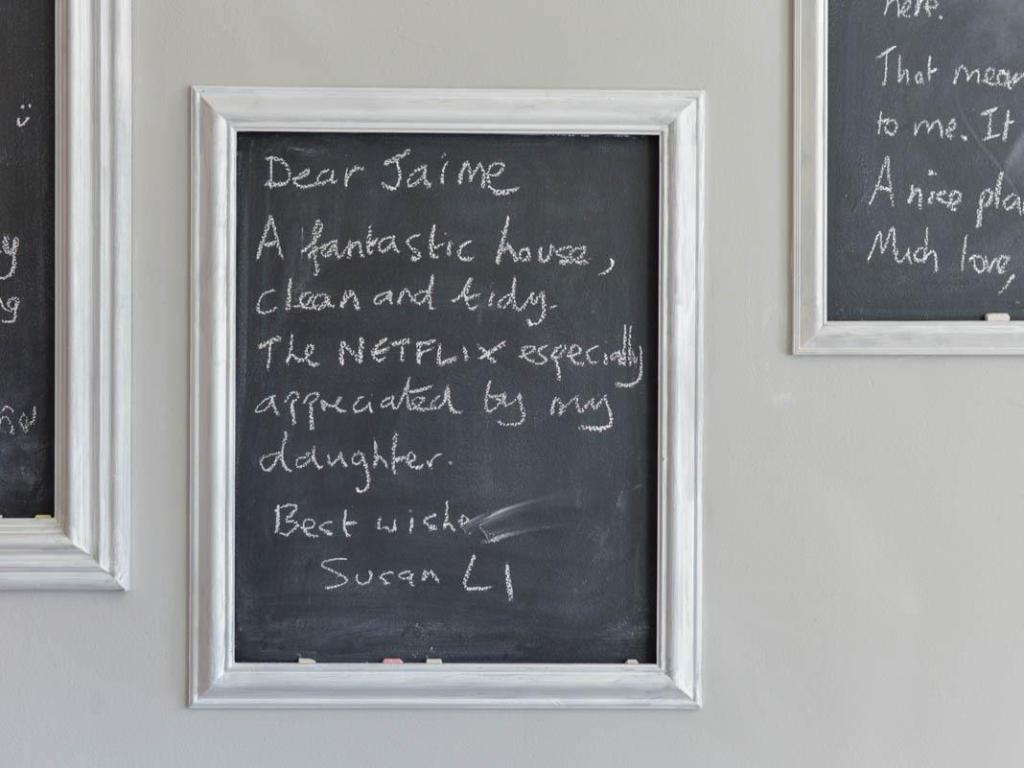 Dear Jaime
A fantastic house,
clean and tidy.
The NETFLIX especially
appreciated by my
daughter.
Best wishe
Susan LI
here.
That mean
to me. It
A nice pla
Much love,